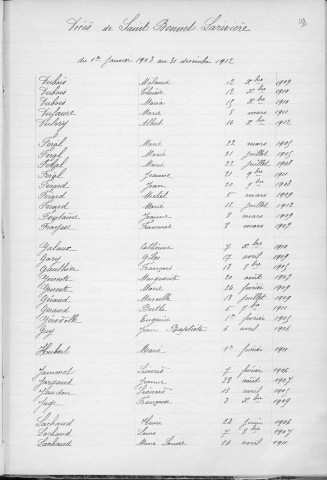 Décès de Saint Bonnet Larivière
du 1er janvier 1903 au 31 décembre 1912
Dubois Mélanie 12 Xbre 1909
Dubois 12 Xbre 1910
Dubois Maria 15 Xbre 1911
Dufaure Marie 8 mars 1911
Albert 16 Xbre 1912
Fergl Marie 22 mars 1905
Fergl Marie 21 juillet 1905
Fergl Marie 22 juillet 1908
Fergl Jeanne 21 9bre 1911
Ferard Jean 20 9bre 1908
Ferard Michel 5 mars 1909
Ferard Marie 12 juillet 1912
Jeanne 8 mars 1909
Fraysse 8 mars 1909
Catherine 7 Xbre 1910
Gary Gilles 17 avril 1909
Gauthier François 18 8bre 1905
Geneste Marguerite 20 août 1907
Geneste Marie 26 février 1909
Géraud Marcelle 18 juillet 1909
Géraud Berthe 6 9bre 1911
Eugénie 1er février 1905
Guy Jean Baptiste 6 avril 1906
Hubert Marie 1er février 1911
Jammot Léonard 7 février 1906
Jargaud Jeanne 29 août 1907
Jaudon Léonard 18 avril 1905
Juge Françoise 3 Xbre 1909
Lachaud 23 juin 1906
Lachaud 7 8bre 1907
Lachaud Marie Louise 20 avril 1911